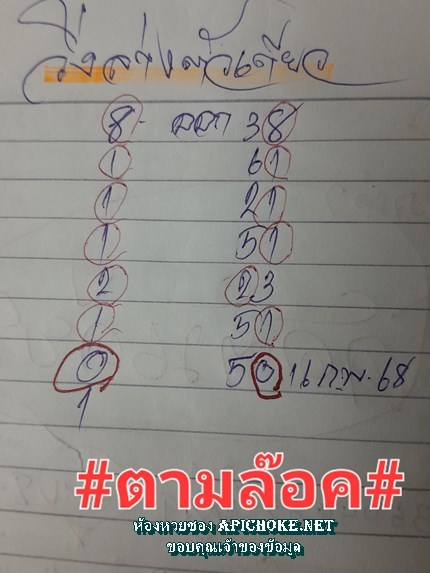 วิ่งล่างตัวเดียว
8 ออก 38
1 61
1 21
1 51
2 23
1 51
0 50 16 ก.พ. 68
1
#ตามล๊อค#
ห้องหวยซอง APICHOKE.NET
ขอบคุณเจ้าของข้อมูล